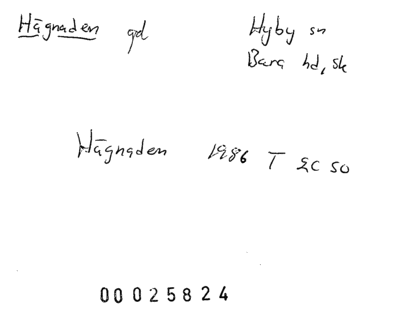 Hägnaden gd
Hyby sn
Bara hd, sk
Hägnaden 1986 T 2C SO
00025824